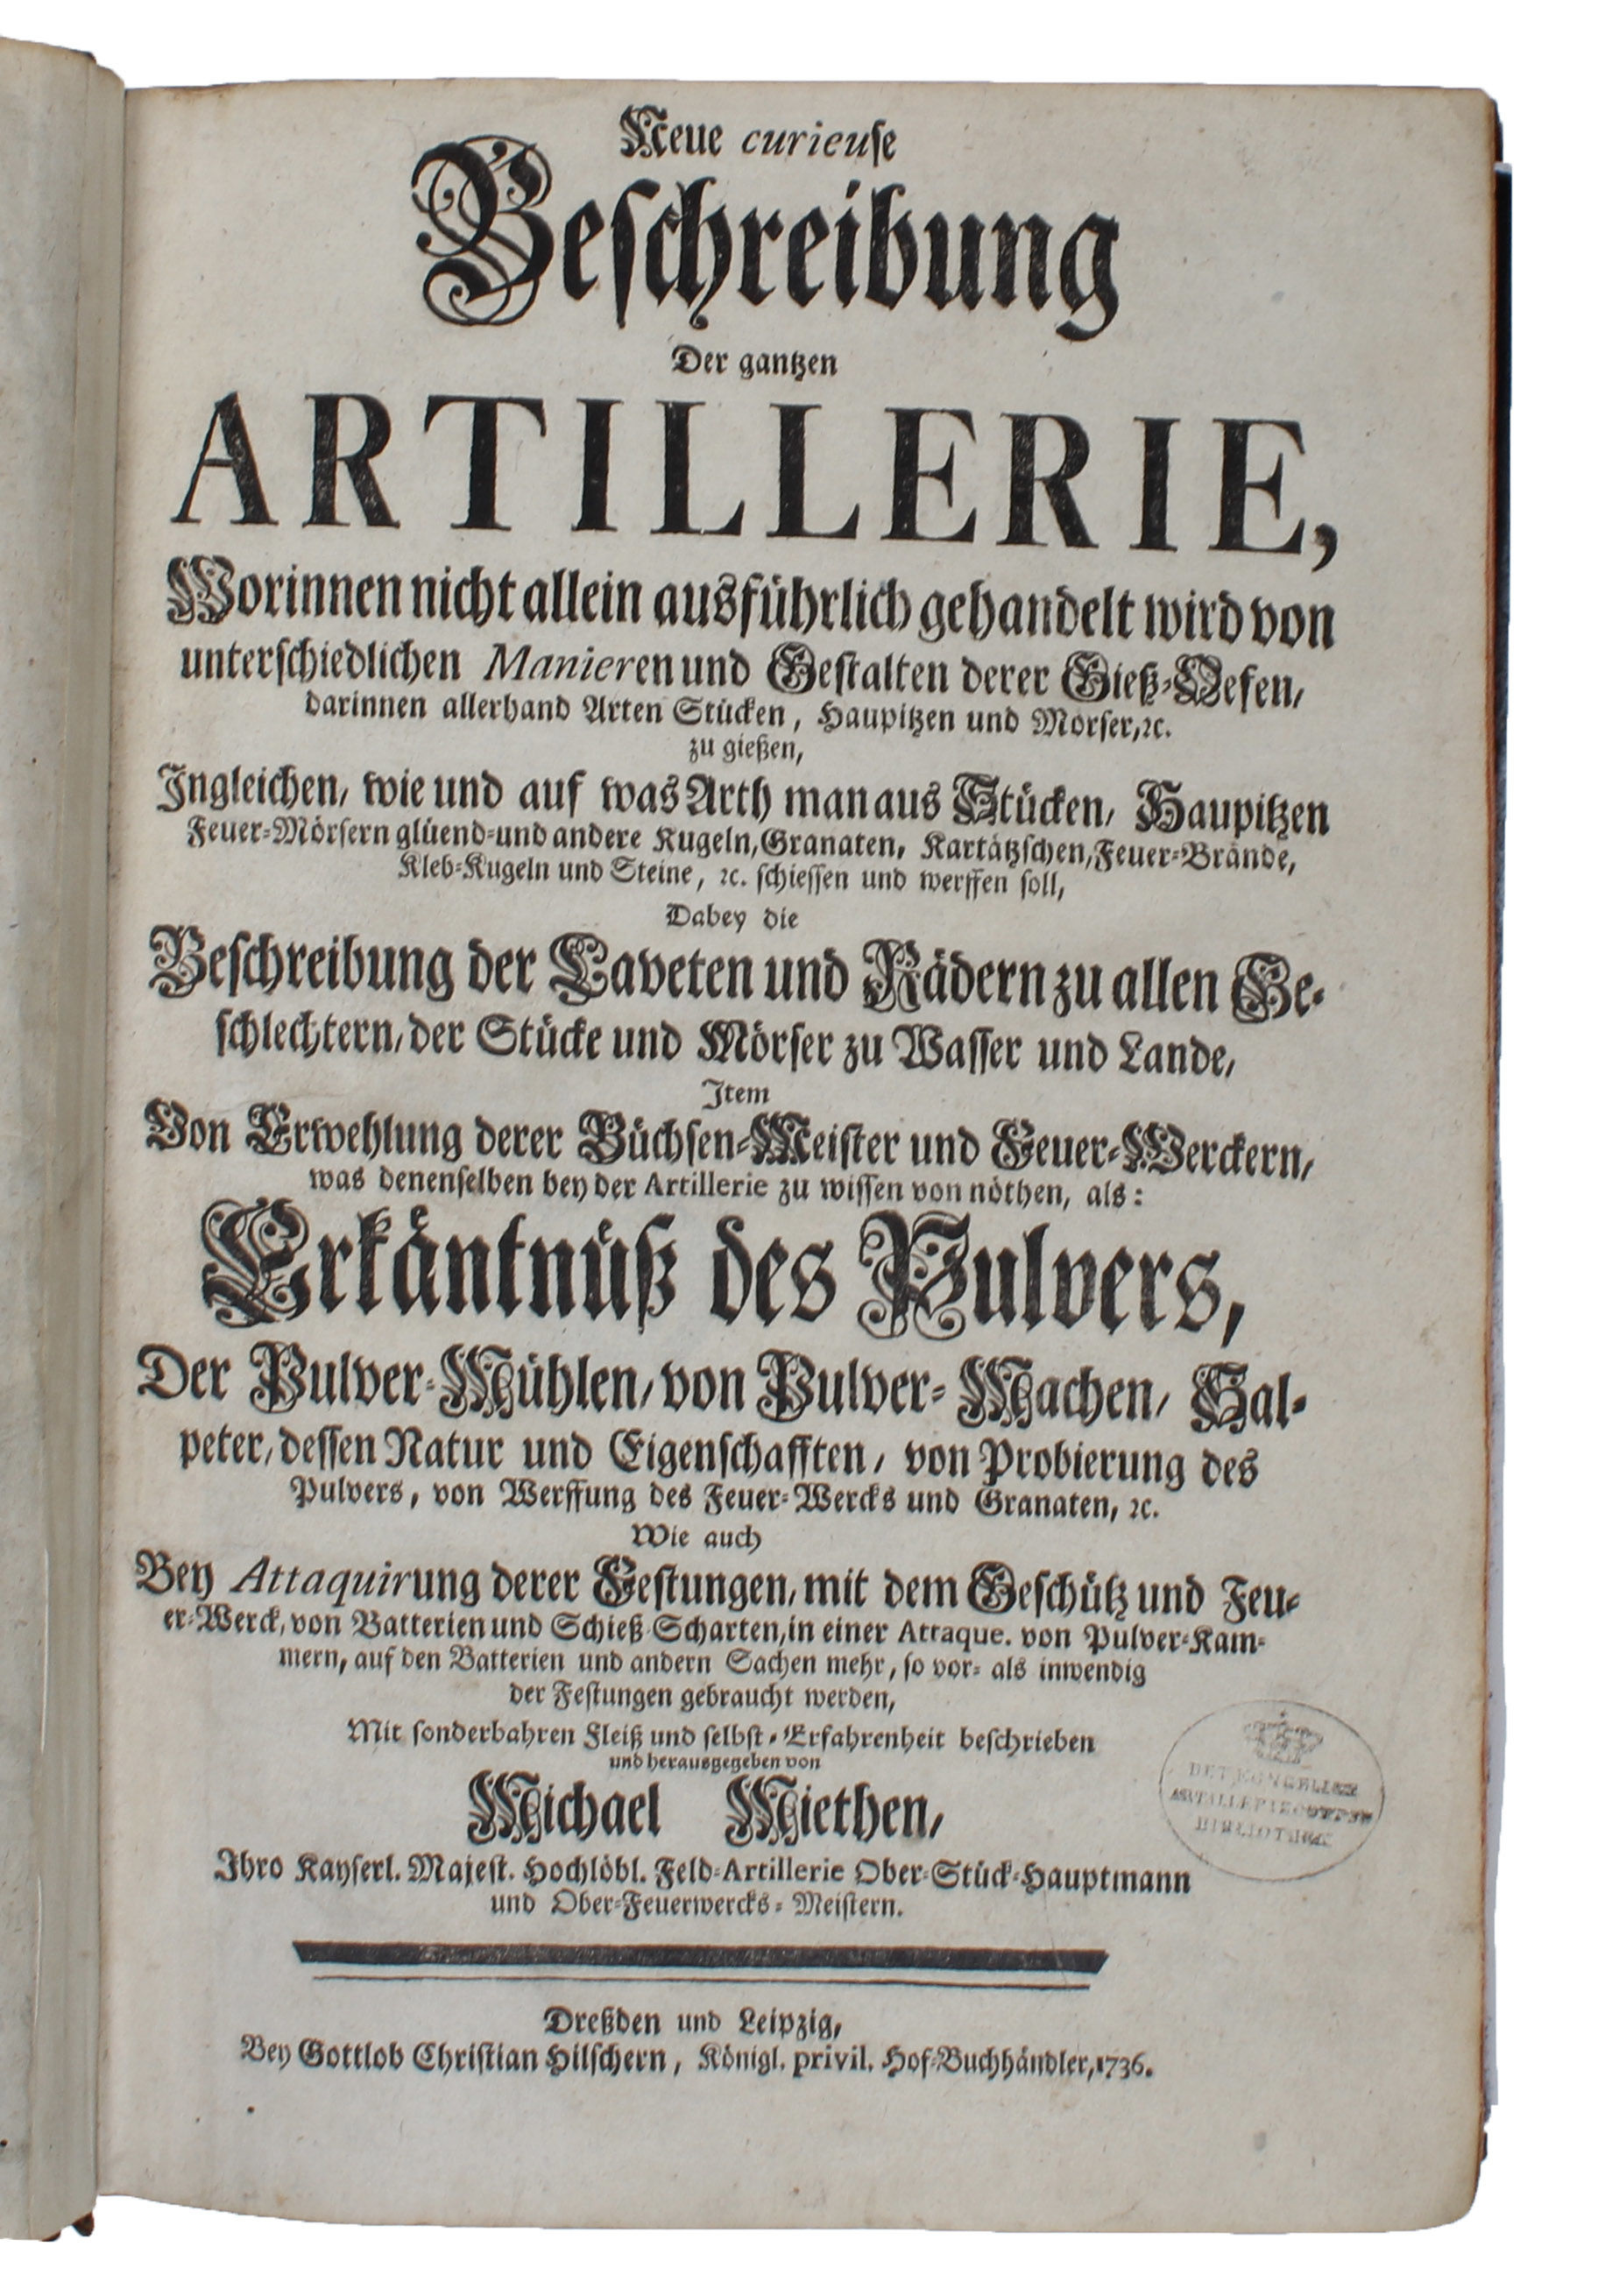 Neue curieuse
Beschreibung
Der gantzen
ARTILLERIE,
Worinnen nicht allein ausführlich gehandelt wird von
unterschiedlichen Manieren und Gestalten derer Gieß-Oefen,
darinnen allerhand Arten Stücken, Haupitzen und Mörser, ꝛc.
zu gießen,
Ingleichen, wie und auf was Arth man aus Stücken, Haupitzen
Feuer-Mörsern glüend-und andere Kugeln, Granaten, Kartätzschen, Feuer-Brände,
Kleb-Kugeln und Steine, ꝛc. schiessen und werffen soll,
Dabey die
Beschreibung der Laveten und Rädern zu allen Ge-
schlechtern, der Stücke und Mörser zu Wasser und Lande,
Item
Von Erwehlung derer Büchsen-Meister und Feuer-Werckern,
was denenselben bey der Artillerie zu wissen von nöthen, als:
Erkäntnüß des Pulvers,
Der Pulver-Mühlen, von Pulver-Machen, Sal-
peter, dessen Natur und Eigenschafften, von Probierung des
Pulvers, von Werffung des Feuer-Wercks und Granaten, ꝛc.
Wie auch
Bey Attaquirung derer Festungen, mit dem Geschütz und Feu-
er-Werck, von Batterien und Schieß-Scharten, in einer Attaque. von Pulver-Kam-
mern, auf den Batterien und andern Sachen mehr, so vor- als inwendig
der Festungen gebraucht werden,
Mit sonderbahren Fleiß und selbst-Erfahrenheit beschrieben
und herausgegeben von
Michael Miethen,
Ihro Kayserl. Majest. Hochlöbl. Feld-Artillerie Ober-Stück-Hauptmann
und Ober-Feuerwercks-Meistern.
DET KONGELIGE
BIBLIOTHEK
Dreßden und Leipzig,
Bey Gottlob Christian Hilschern, Königl. privil. Hof-Buchhändler, 1736.